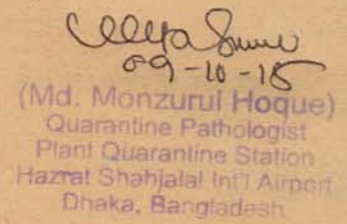 09-10-15
(Md. Monzurul Hoque)
Quarantine Pathologist
Plant Quarantine Station
Hazrat Shahjalal Int'l Airport
Dhaka, Bangladesh